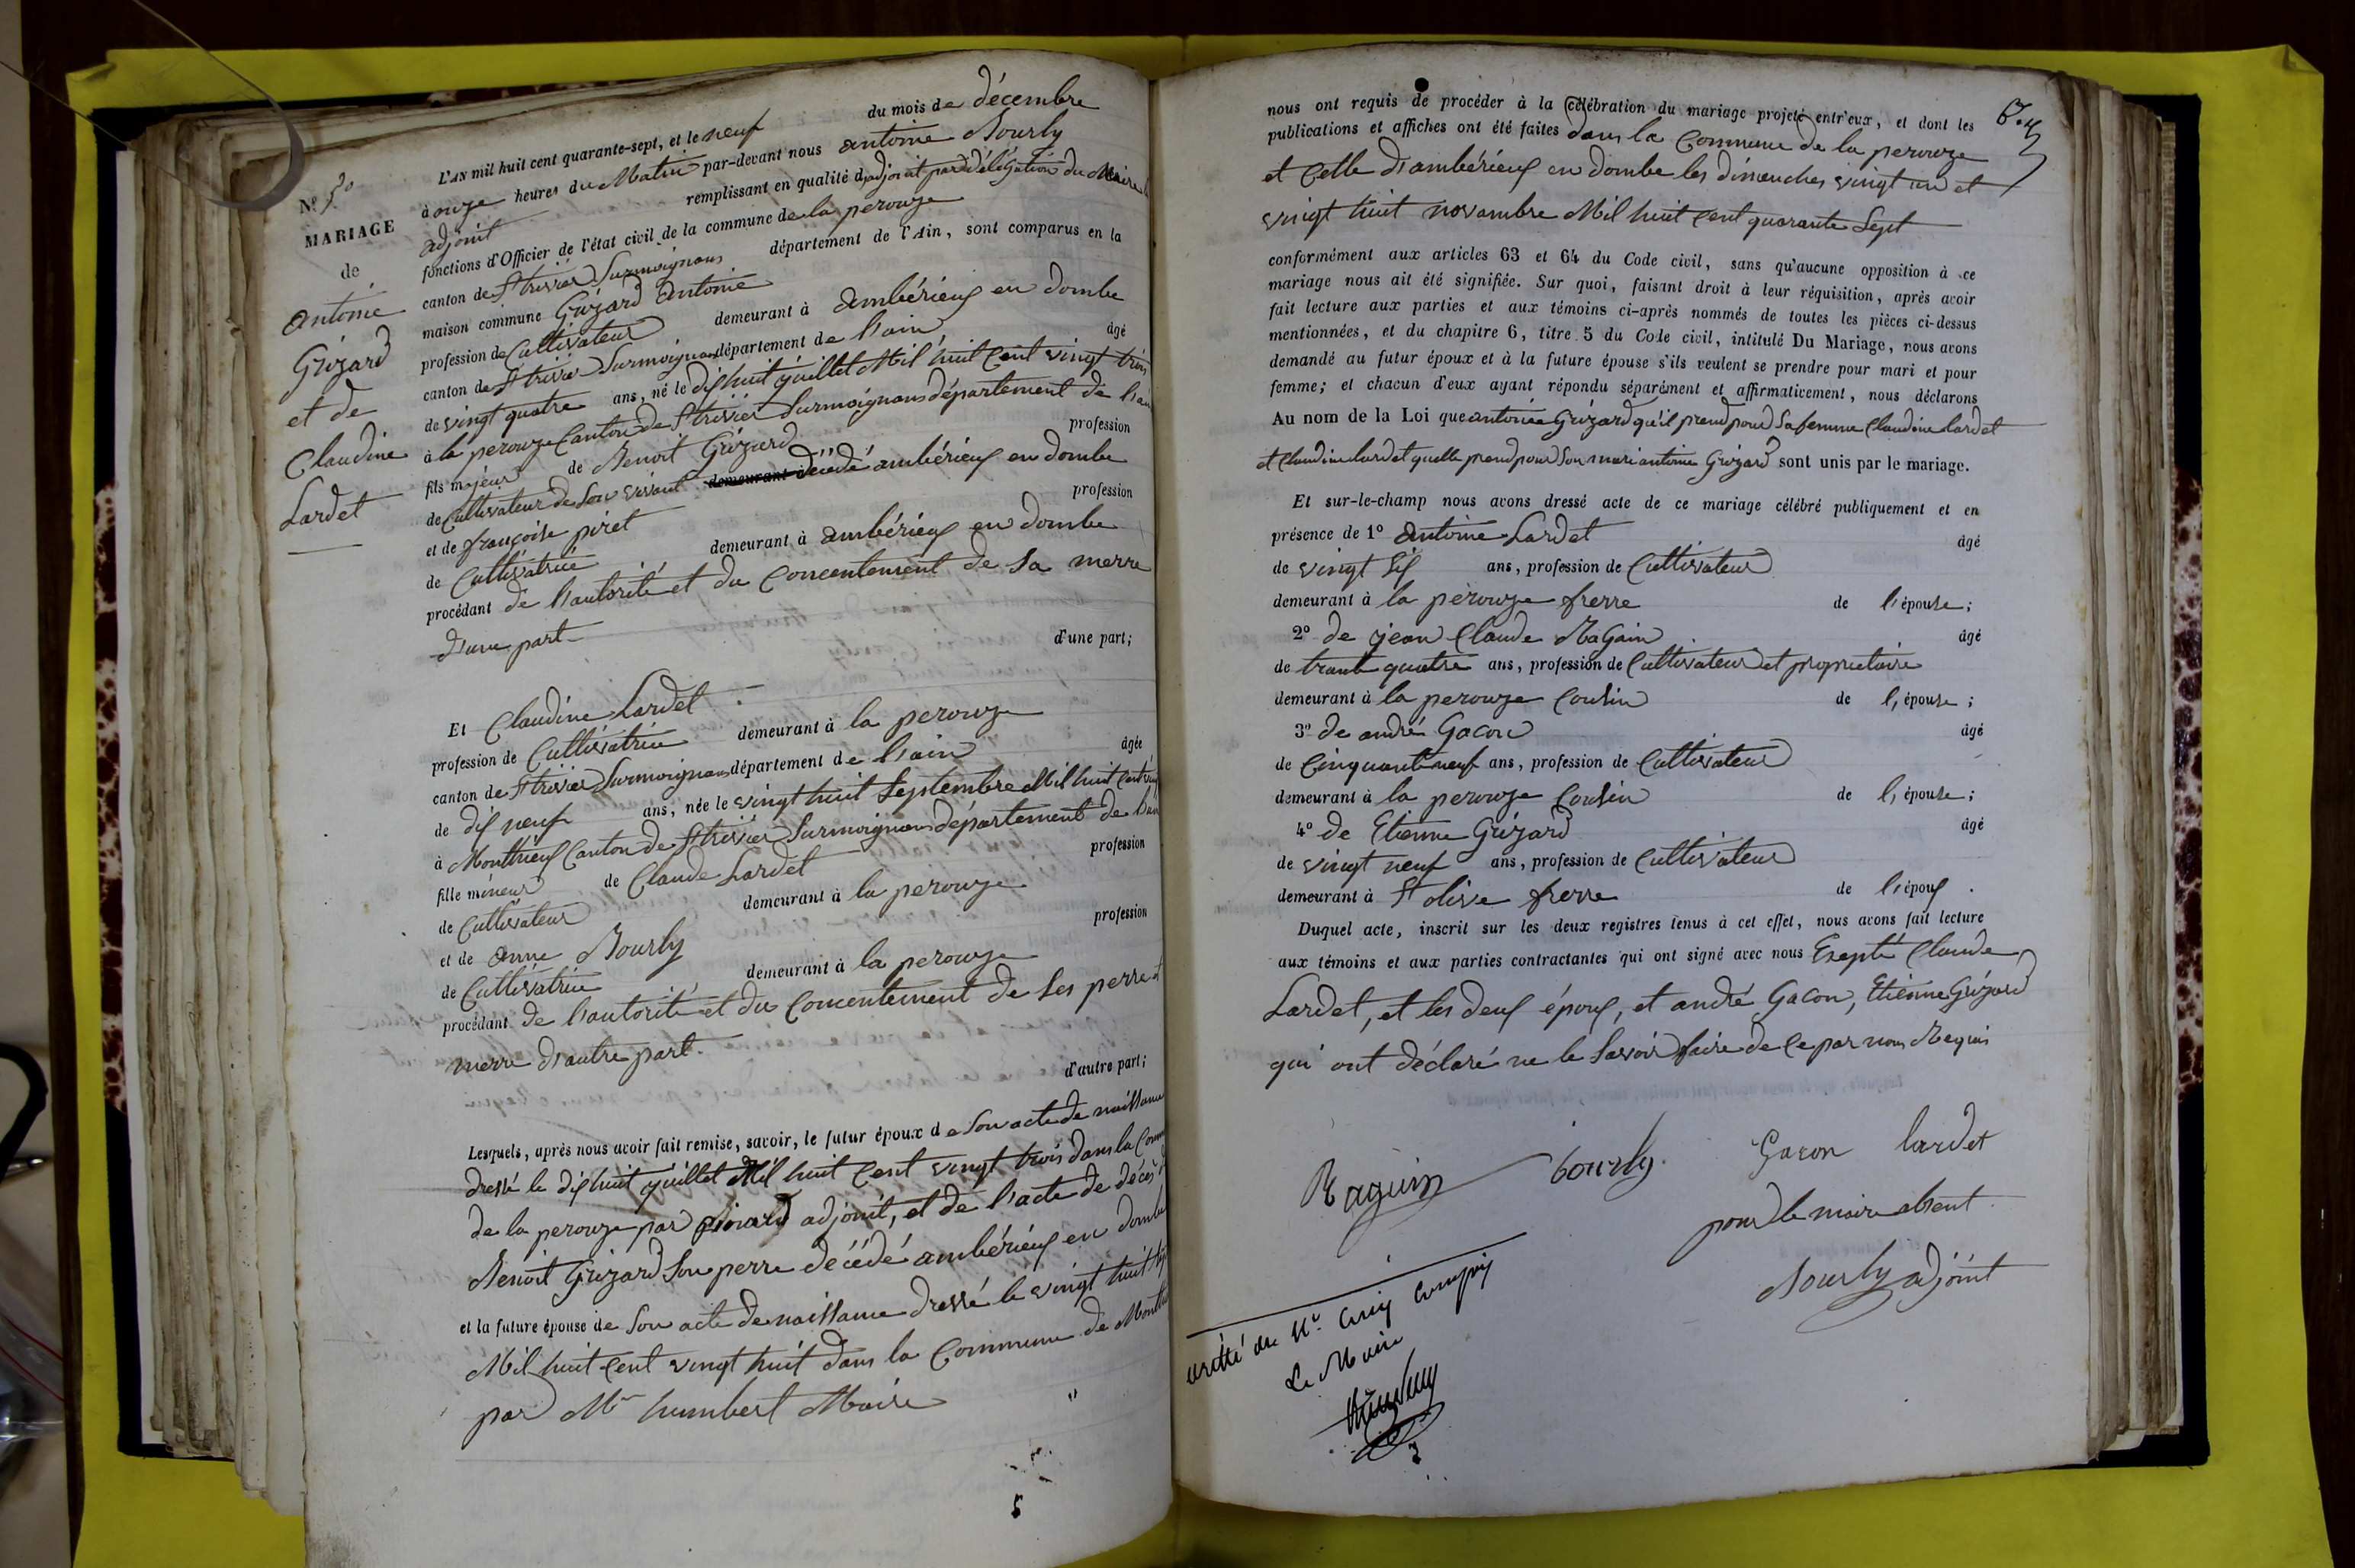 N.º 5º
MARIAGE
de
antoine
Grizard
et de
Claudine
Lardet
L'AN mil huit cent quarante-sept, et le neuf du mois de décembre
à onze heures du Matin par-devant nous antoine Bourly
adjoint remplissant en qualité d'adjoint par délégation du Maire
fonctions d'Officier de l'état civil de la commune de la perouze
canton de St trivier Surmoignans département de l'Ain, sont comparus en la
maison commune Grizard antoine
profession de Cultivateur demeurant à ambérieux en dombe
canton de St trivier Surmoignans département de l'ain âgé
de vingt quatre ans, né le dix huit juillet Mil huit Cent vingt trois
à la perouze Canton de St trivier Surmoignans département de l'ain
fils majeur de Benoit Grizard profession
de Cultivateur de Son vivant demeurant décédé ambérieux en dombe
et de françoise piret profession
de Cultivatrice demeurant à ambérieux en dombe
procédant de l'autorité et du Concentement de sa merre
d'une part d'une part;
Et Claudine Lardet
profession de Cultivatrice demeurant à la perouze
canton de St trivier Surmoignans département de l'ain âgée
de dix neuf ans, née le vingt huit Septembre Mil huit Cent vingt
à Monthieux Canton de St trivier Surmoignans département de l'ain
fille mineur de Claude Lardet profession
de Cultivateur demeurant à la perouze
et de anne Bourly profession
de Cultivatrice demeurant à la perouze
procédant de l'autorité et du Concentement de Ses perre et
merre d'autre part. d'autre part;
Lesquels, après nous avoir fait remise, savoir, le futur époux de Son acte de naissance
dressé le dix huit juillet Mil huit Cent vingt trois dans la Comm
de la perouze par adjoint, et de l'acte de décès d
Benoit Grizard Son perre décédé ambérieux en dombe
et la future épouse de Son acte de naissance dressé le vingt huit
Mil huit Cent vingt huit dans la Commune de Monthi
par Mr humbert Maire "
nous ont requis de procéder à la célébration du mariage projeté entr'eux, et dont les
publications et affiches ont été faites dans la Commune de la perouze
et Celle d'ambérieux en dombe les dimenches vingt un et
vingt huit novambre Mil huit Cent quarante Sept
conformément aux articles 63 et 64 du Code civil, sans qu'aucune opposition à ce
mariage nous ait été signifiée. Sur quoi, faisant droit à leur réquisition, après avoir
fait lecture aux parties et aux témoins ci-après nommés de toutes les pièces ci-dessus
mentionnées, et du chapitre 6, titre 5 du Code civil, intitulé Du Mariage, nous avons
demandé au futur époux et à la future épouse s'ils veulent se prendre pour mari et pour
femme; et chacun d'eux ayant répondu séparément et affirmativement, nous déclarons
Au nom de la Loi que antoine Grizard qu'il prend pour Sa femme Claudine Lardet
et Claudine Lardet quelle prend pour Son mari antoine Grizard sont unis par le mariage.
Et sur-le-champ nous avons dressé acte de ce mariage célébré publiquement et en
présence de 1º antoine Lardet âgé
de vingt Six ans, profession de Cultivateur
demeurant à la perouze frerre de l'épouse;
2º de jean Claude Ragain âgé
de trante quatre ans, profession de Cultivateur et proprietaire
demeurant à la perouze Cousin de l'épouse;
3º de andré Gacon âgé
de Cinquante neuf ans, profession de Cultivateur
demeurant à la perouze Cousin de l'épouse;
4º de Etienne Grizard âgé
de vingt neuf ans, profession de Cultivateur
demeurant à St olive frerre de l'époux.
Duquel acte, inscrit sur les deux registres tenus à cet effet, nous avons fait lecture
aux témoins et aux parties contractantes qui ont signé avec nous Exepté Claude
Lardet, et les deux époux, et andré Gacon, Etienne Grizard
qui ont déclaré ne le Savoir faire de Ce par nous Requis
Raguin bourly Gacon lardet
pour le maire absent
Bourly adjoint
arrêté au Nº Cinq
Le Maire
5